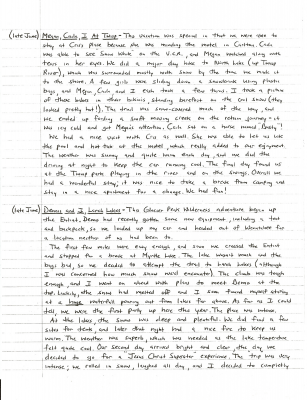 (late June) Megan, Cick, I At Tahoe - This vacation was special in that we were able to
stay at Cris's place because she was managing the motel in
was able to see Snow White on the V.C.R., and Megan watched along with
tears in her eyes. We did a major day hike to North Lake (up Tahoe
River), which was surrounded mostly with snow by the time we made it
to the shore. A few girls were sliding down a snowbank using plastic
bags, and Megan, Cick and I each took a few turns. I took a picture
of these babes in their bikinis standing barefoot on the cold snow (they
looked pretty hot!). The trail was snow-covered much of the way, and
we ended up finding a swift moving creek on the return journey - it
was icy cold and got Megan's attention. Cick sat on a horse named Rusty!
We had a nice visit with Cris as well. She was able to let us use
the pool and hot tub at the motel, which really added to our enjoyment.
The weather was sunny and quite warm each day, and we did the
driving at night to keep the car running cool. The final day found us
at the Tahoe park playing in the river and on the swings. Overall we
had a wonderful stay; it was nice to take a break from camping and
stay in a nice apartment for a change. We had fun!
(late June) Dennis and I, Lakes - The Glacier Peak Wilderness adventure began up
the Entiat. Dennis had recently gotten some new equipment, including a tent
and backpack, so we loaded up my car and headed out of Wenatchee for
a location neither of us had been to.
The first few miles were easy enough, and soon we crossed the Entiat
and stopped for a break at Myrtle Lake. The lake wasn't much and the
bugs bad, so we decided to attempt the ascent to Lakes (although
I was concerned how much snow we'd encounter). The climb was tough
enough and I went on ahead with plans to meet Dennis at the
top. Luckily, the snow had melted off and I soon found myself staring
at a huge waterfall pouring out from lakes far above. As far as I could
tell, we were the first party up here this year. The place was intense.
At the lakes the snow was deep and plentiful. We did find a few
sites for tents, and later that night had a nice fire to keep us
warm. The weather was superb which was needed as the lake temperature
felt quite cool. Our second day arrived bright and clear, the day we
decided to go for a Jesus Christ Superstar experience. The trip was very
intense; we rolled in snow, laughed all day, and I decided to completely